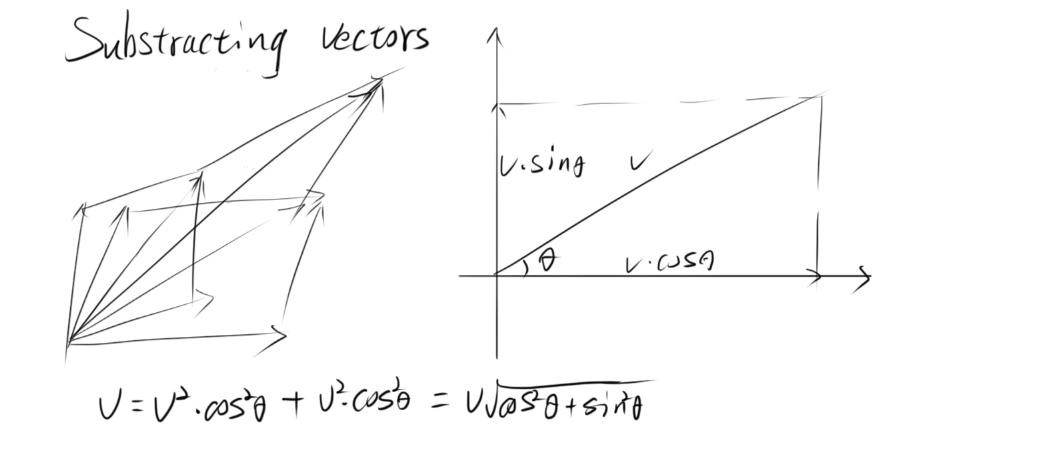 Substracting vectors
v·sinθ
v
θ
v·cosθ
v = v²·cos²θ + v²·cos²θ = v√cos²θ+sin²θ